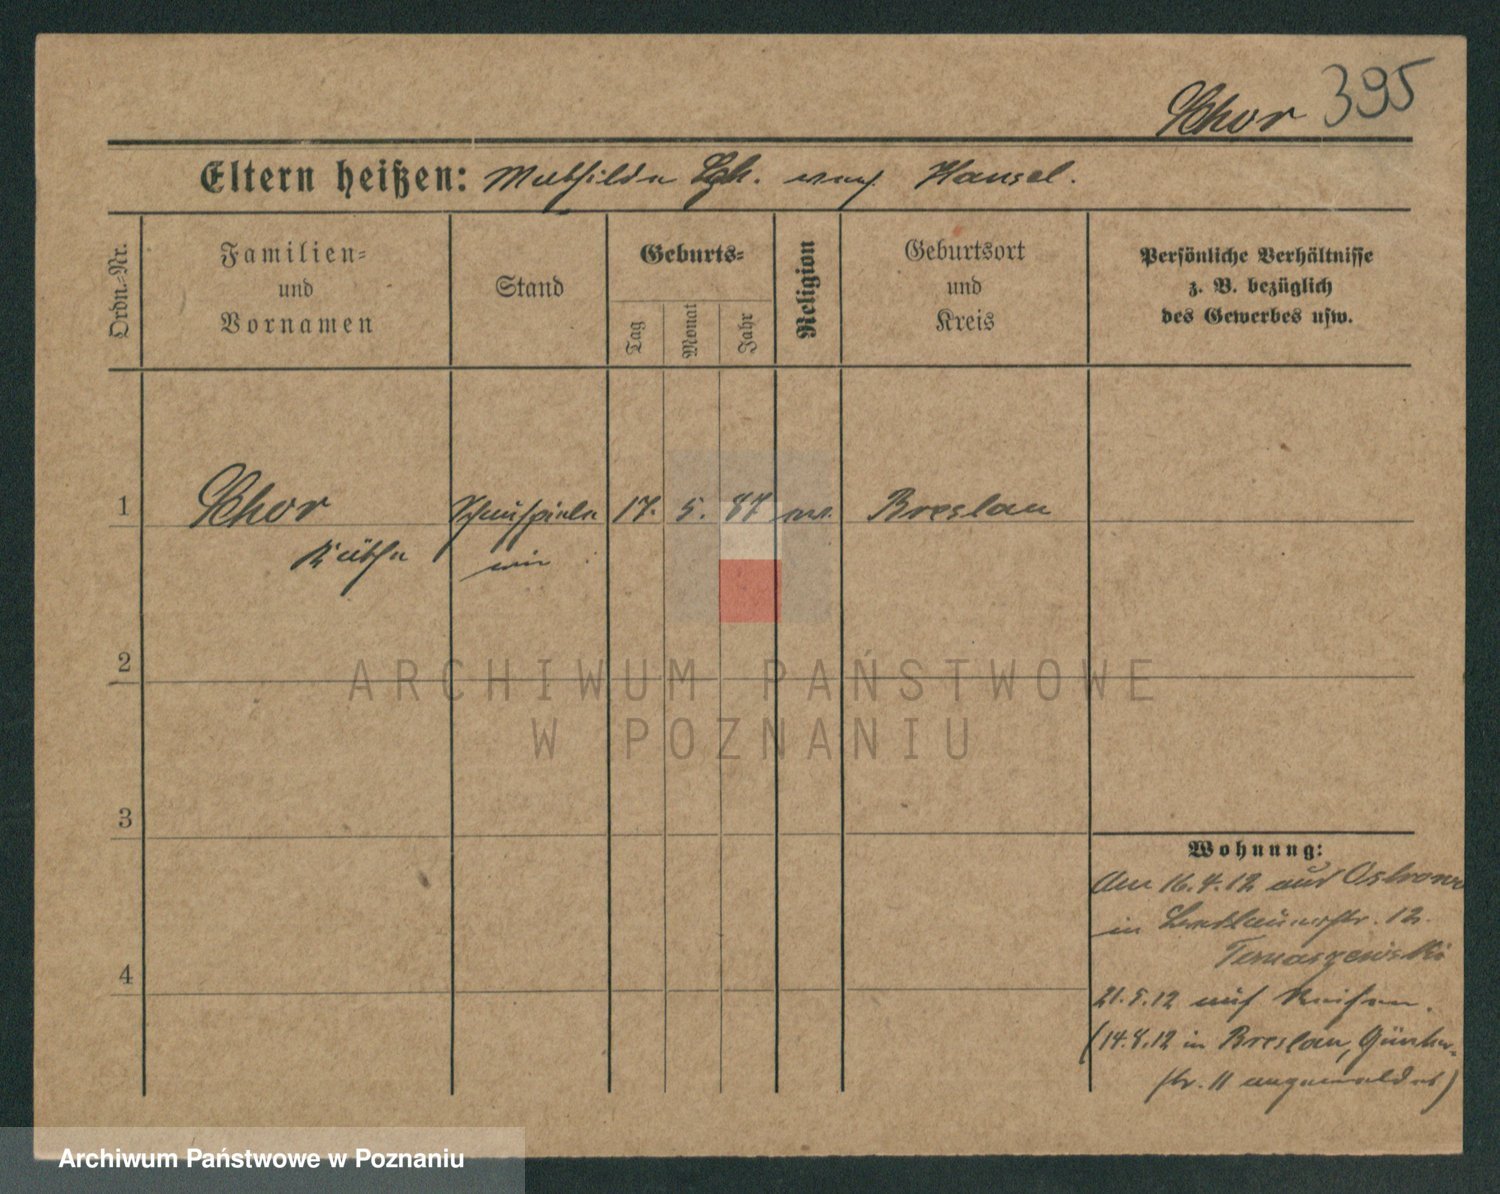 Schor 395
Eltern heißen: Mathilde Sch. verh. Hansel.
Ordn.-Nr.
Familien-
und
Vornamen
Stand
Geburts-
Tag
Monat
Jahr
Religion
Geburtsort
und
Kreis
Persönliche Verhältnisse
z. B. bezüglich
des Gewerbes usw.
1 Schor Schauspiele 17. 5. 87 Breslau
Käthe rin
2
3
4
Wohnung:
Am 16.4.12 aus Ostrowo
in 12.
Tomaszewski
21.5.12 auf Reisen.
(14.8.12 in Breslau, Günther-
str. 11 angemeldet)
ARCHIWUM PAŃSTWOWE
W POZNANIU
Archiwum Państwowe w Poznaniu